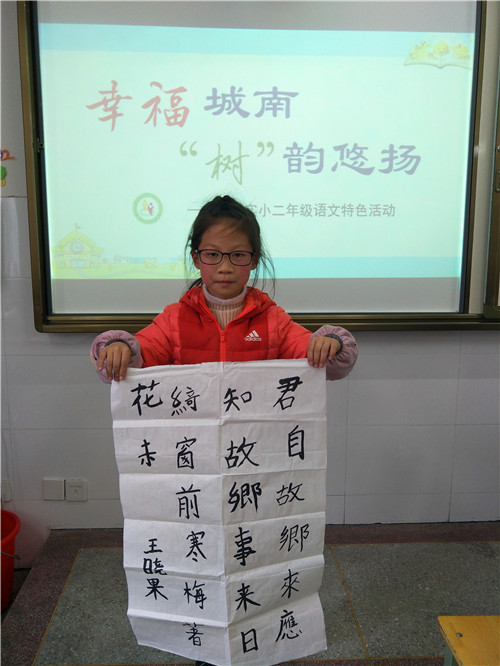 幸福城南
“树”韵悠扬
小二年级语文特色活动
adidas
君自故鄉來應
知故鄉事来日
綺窗前寒梅著
花未
王晓果